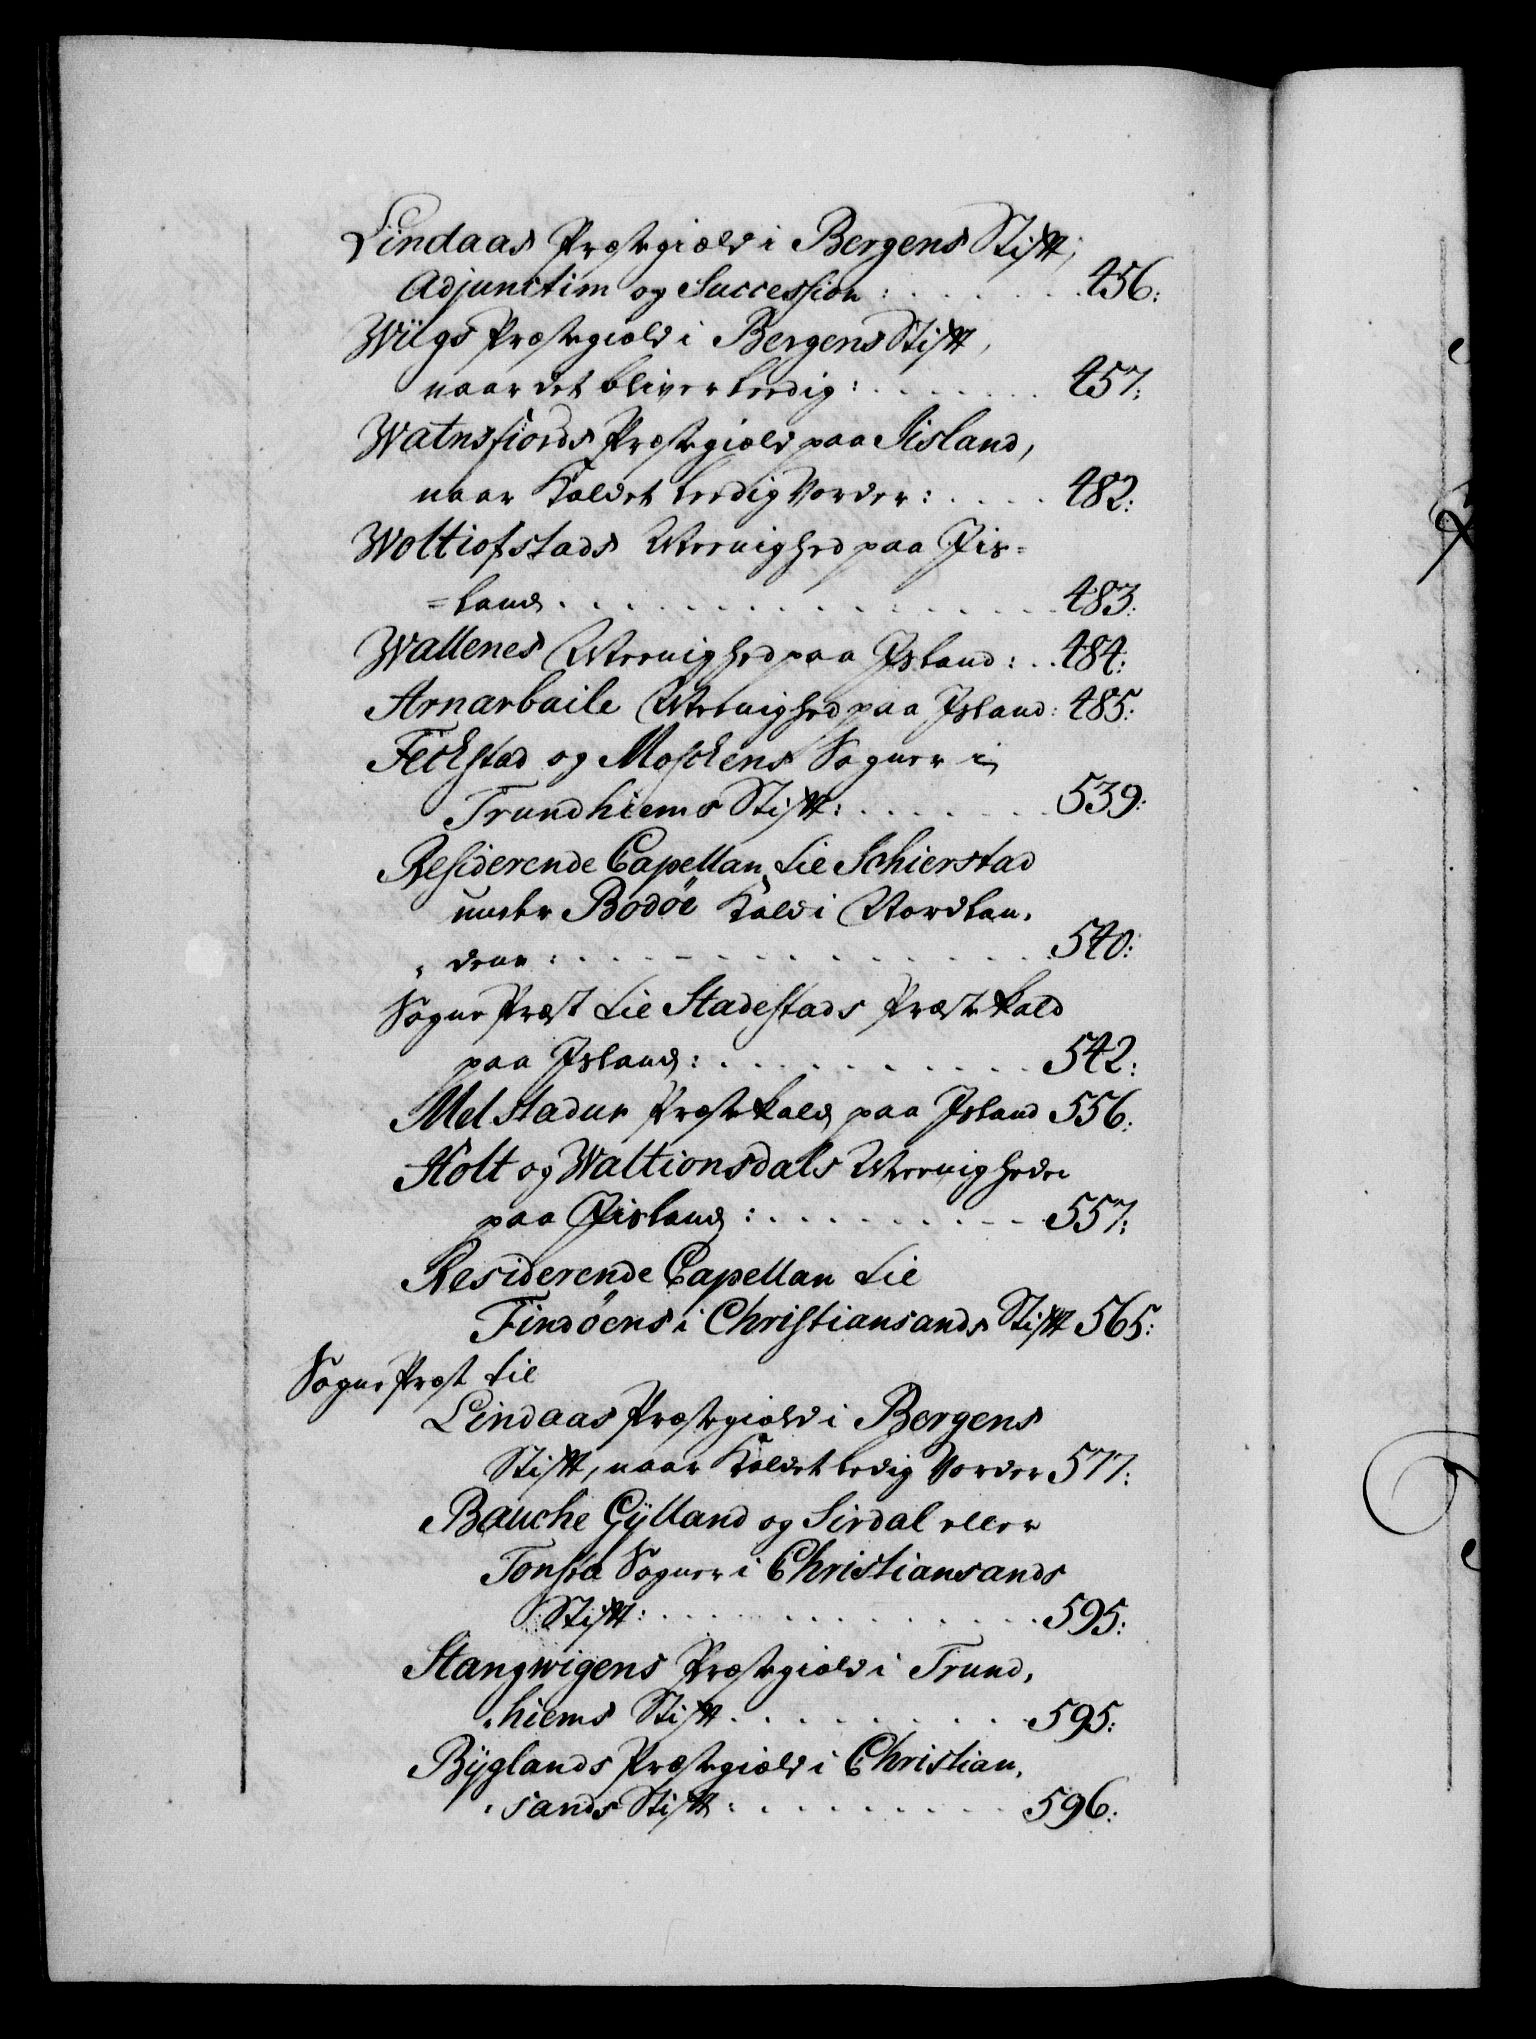 Lindaas Præstegiæld i Bergens Stift,
Adjunctim og Succession: 456:
Wiigs Præstegiæld i Bergens Stift,
naar det bliver leedig: 457:
Watnsfiords Præstegiæld paa Iisland,
naar Kaldet leedig Vorder: 482:
Woltiofstads Weenighed paa Jis=
=land 483:
Wallenes Weenighed paa Jsland: 484:
Arnarbaile Weenighed paa Jsland: 485:
Feckstad og Mosckens Sogner i
Trundhiems Stift: 539:
Residerende Capellan til Schierstad
under Bodøe Kald i Nordlan,
, dene: 540:
Sogne Præst til Stadestads Præste Kald
paa Jsland: 542:
Melstadur Præste Kald paa Jsland 556:
Holt og Waltionsdals Weenigheder
paa Jisland: 557:
Residerende Capellan til
Findöens i Christiansands Stift 565:
Sogne Præst til
Lindaas Præstegiæld i Bergens
Stift, naar Kaldet ledig Vorder 577:
Bauche Gÿlland og Sirdal eller
Tonsta Sogner i Christiansands
Stift: 595:
Stangwigens Præstegiæld i Trund,
, hiems Stift 595:
Bÿglands Præstegiæld i Christian,
, sands Stift: 596: